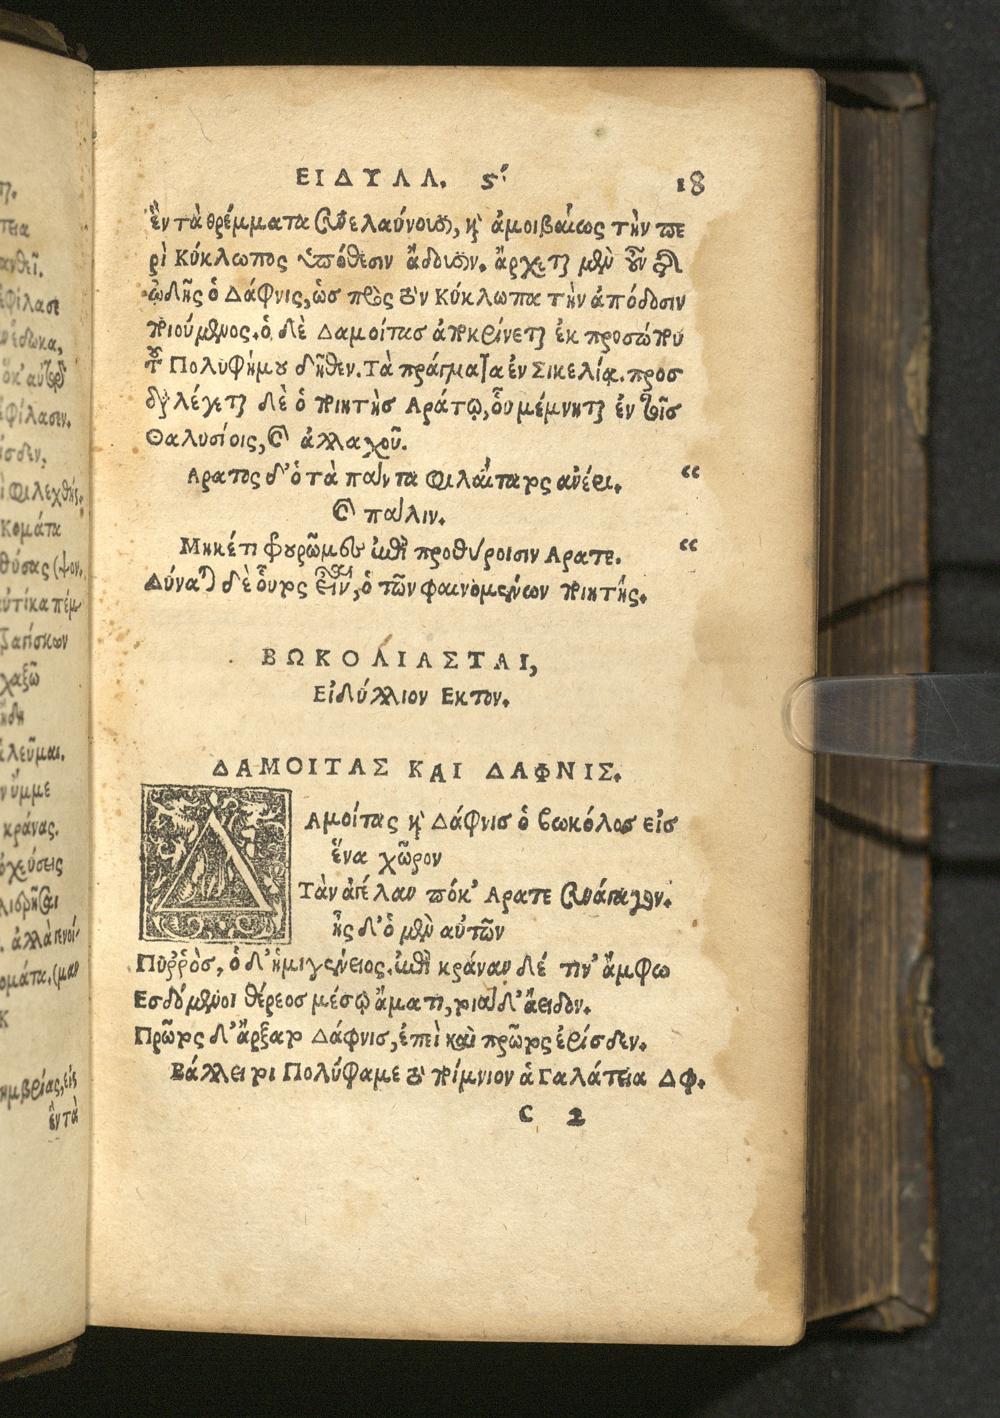 ΕΙΔΥΛΛ. ϛʹ. 18
ἓν τὰ θρέμματα συνελαύνουσι, καὶ ἀμοιβαίως τὴν πε
ρὶ Κύκλωπος ὑπόθεσιν ᾄδουσιν. ἄρχεται μὲν οὖν τῆς
ᾠδῆς ὁ Δάφνις, ὡς πρὸς τὸν Κύκλωπα τὴν ἀπόδοσιν
ποιούμενος. ὁ δὲ Δαμοίτας ἀποκρίνεται ἐκ προσώπου
τοῦ Πολυφήμου δῆθεν. Τὰ πράγματα ἐν Σικελίᾳ. προσ
διαλέγεται δὲ ὁ ποιητὴς Αράτῳ, οὗ μέμνηται ἐν τοῖς
Θαλυσίοις, καὶ ἀλλαχοῦ.
Αρατος δ' ὁ τὰ πάντα φιλαίτατος ἀνέρι. “
καὶ πάλιν.
Μηκέτι φρουρῶμες ἐπὶ προθύροισιν Αρατε. “
Δύναται δὲ οὗτος εἶναι, ὁ τῶν φαινομένων ποιητής.
ΒΩΚΟΛΙΑΣΤΑΙ,
Εἰδύλλιον Εκτον.
ΔΑΜΟΙΤΑΣ ΚΑΙ ΔΑΦΝΙΣ.
ΔΑμοίτας καὶ Δάφνις ὁ βωκόλος εἰς
ἕνα χῶρον
Τὰν ἀγέλαν πόκ' Αρατε συνάγαγον.
ἦς δ' ὁ μὲν αὐτῶν
Πυῤῥὸς, ὁ δ' ἡμιγένειος. ἐπὶ κράναν δέ τιν' ἄμφω
Εσδόμενοι θέρεος μέσῳ ἄματι, τοιάδ' ἄειδον.
Πρῶτος δ' ἄρξατο Δάφνις, ἐπεὶ καὶ πρῶτος ἐρίσδεν.
Βάλλει τοι Πολύφαμε τὸ ποίμνιον ἁ Γαλάτεια ΔΦ.
C 2